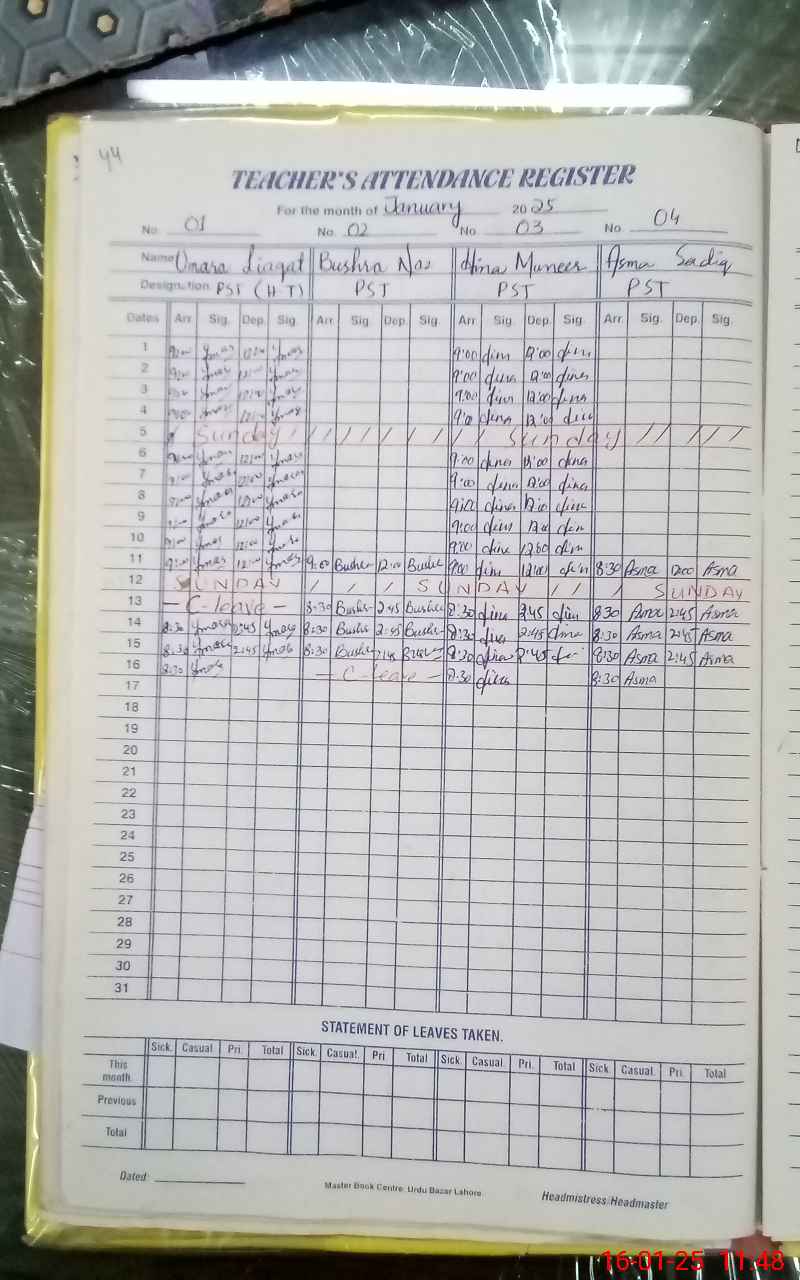 44
TEACHER'S ATTENDANCE REGISTER
For the month of January 2025
No 01 No 02 No 03 No 04
Name Umara Liaqat Bushra Naz Hina Muneer Asma Sadiq
Designation PST (H-T) PST PST PST
Dates Arr. Sig. Dep. Sig. Arr. Sig. Dep. Sig. Arr. Sig. Dep. Sig. Arr. Sig. Dep. Sig.
1 9:00 12:00 9:00 12:00
2 9:00 12:00 9:00 12:00
3 9:00 12:00 9:00 12:00
4 9:00 12:00 9:00 12:00
5 Sunday Sunday
6 9:00 12:00 9:00 12:00
7 9:00 12:00 9:00 12:00
8 9:00 12:00 9:00 12:00
9 9:00 12:00 9:00 12:00
10 9:00 12:00 9:00 12:00
11 9:00 12:00 9:00 Bushra 12:00 Bushra 9:00 12:00 8:30 Asma 12:00 Asma
12 SUNDAY SUNDAY SUNDAY
13 - C-leave - 8:30 Bushra 2:45 Bushra 8:30 2:45 8:30 Asma 2:45 Asma
14 8:30 2:45 8:30 Bushra 2:45 Bushra 8:30 2:45 8:30 Asma 2:45 Asma
15 8:30 2:45 8:30 Bushra 2:45 Bushra 8:30 2:45 8:30 Asma 2:45 Asma
16 8:30 - C-leave - 8:30 8:30 Asma
17
18
19
20
21
22
23
24
25
26
27
28
29
30
31
STATEMENT OF LEAVES TAKEN.
Sick. Casual Pri. Total Sick. Casual. Pri. Total Sick. Casual. Pri. Total Sick. Casual. Pri. Total
This month.
Previous
Total
Dated:
Master Book Centre, Urdu Bazar Lahore.
Headmistress/Headmaster
16-01-25 11:48